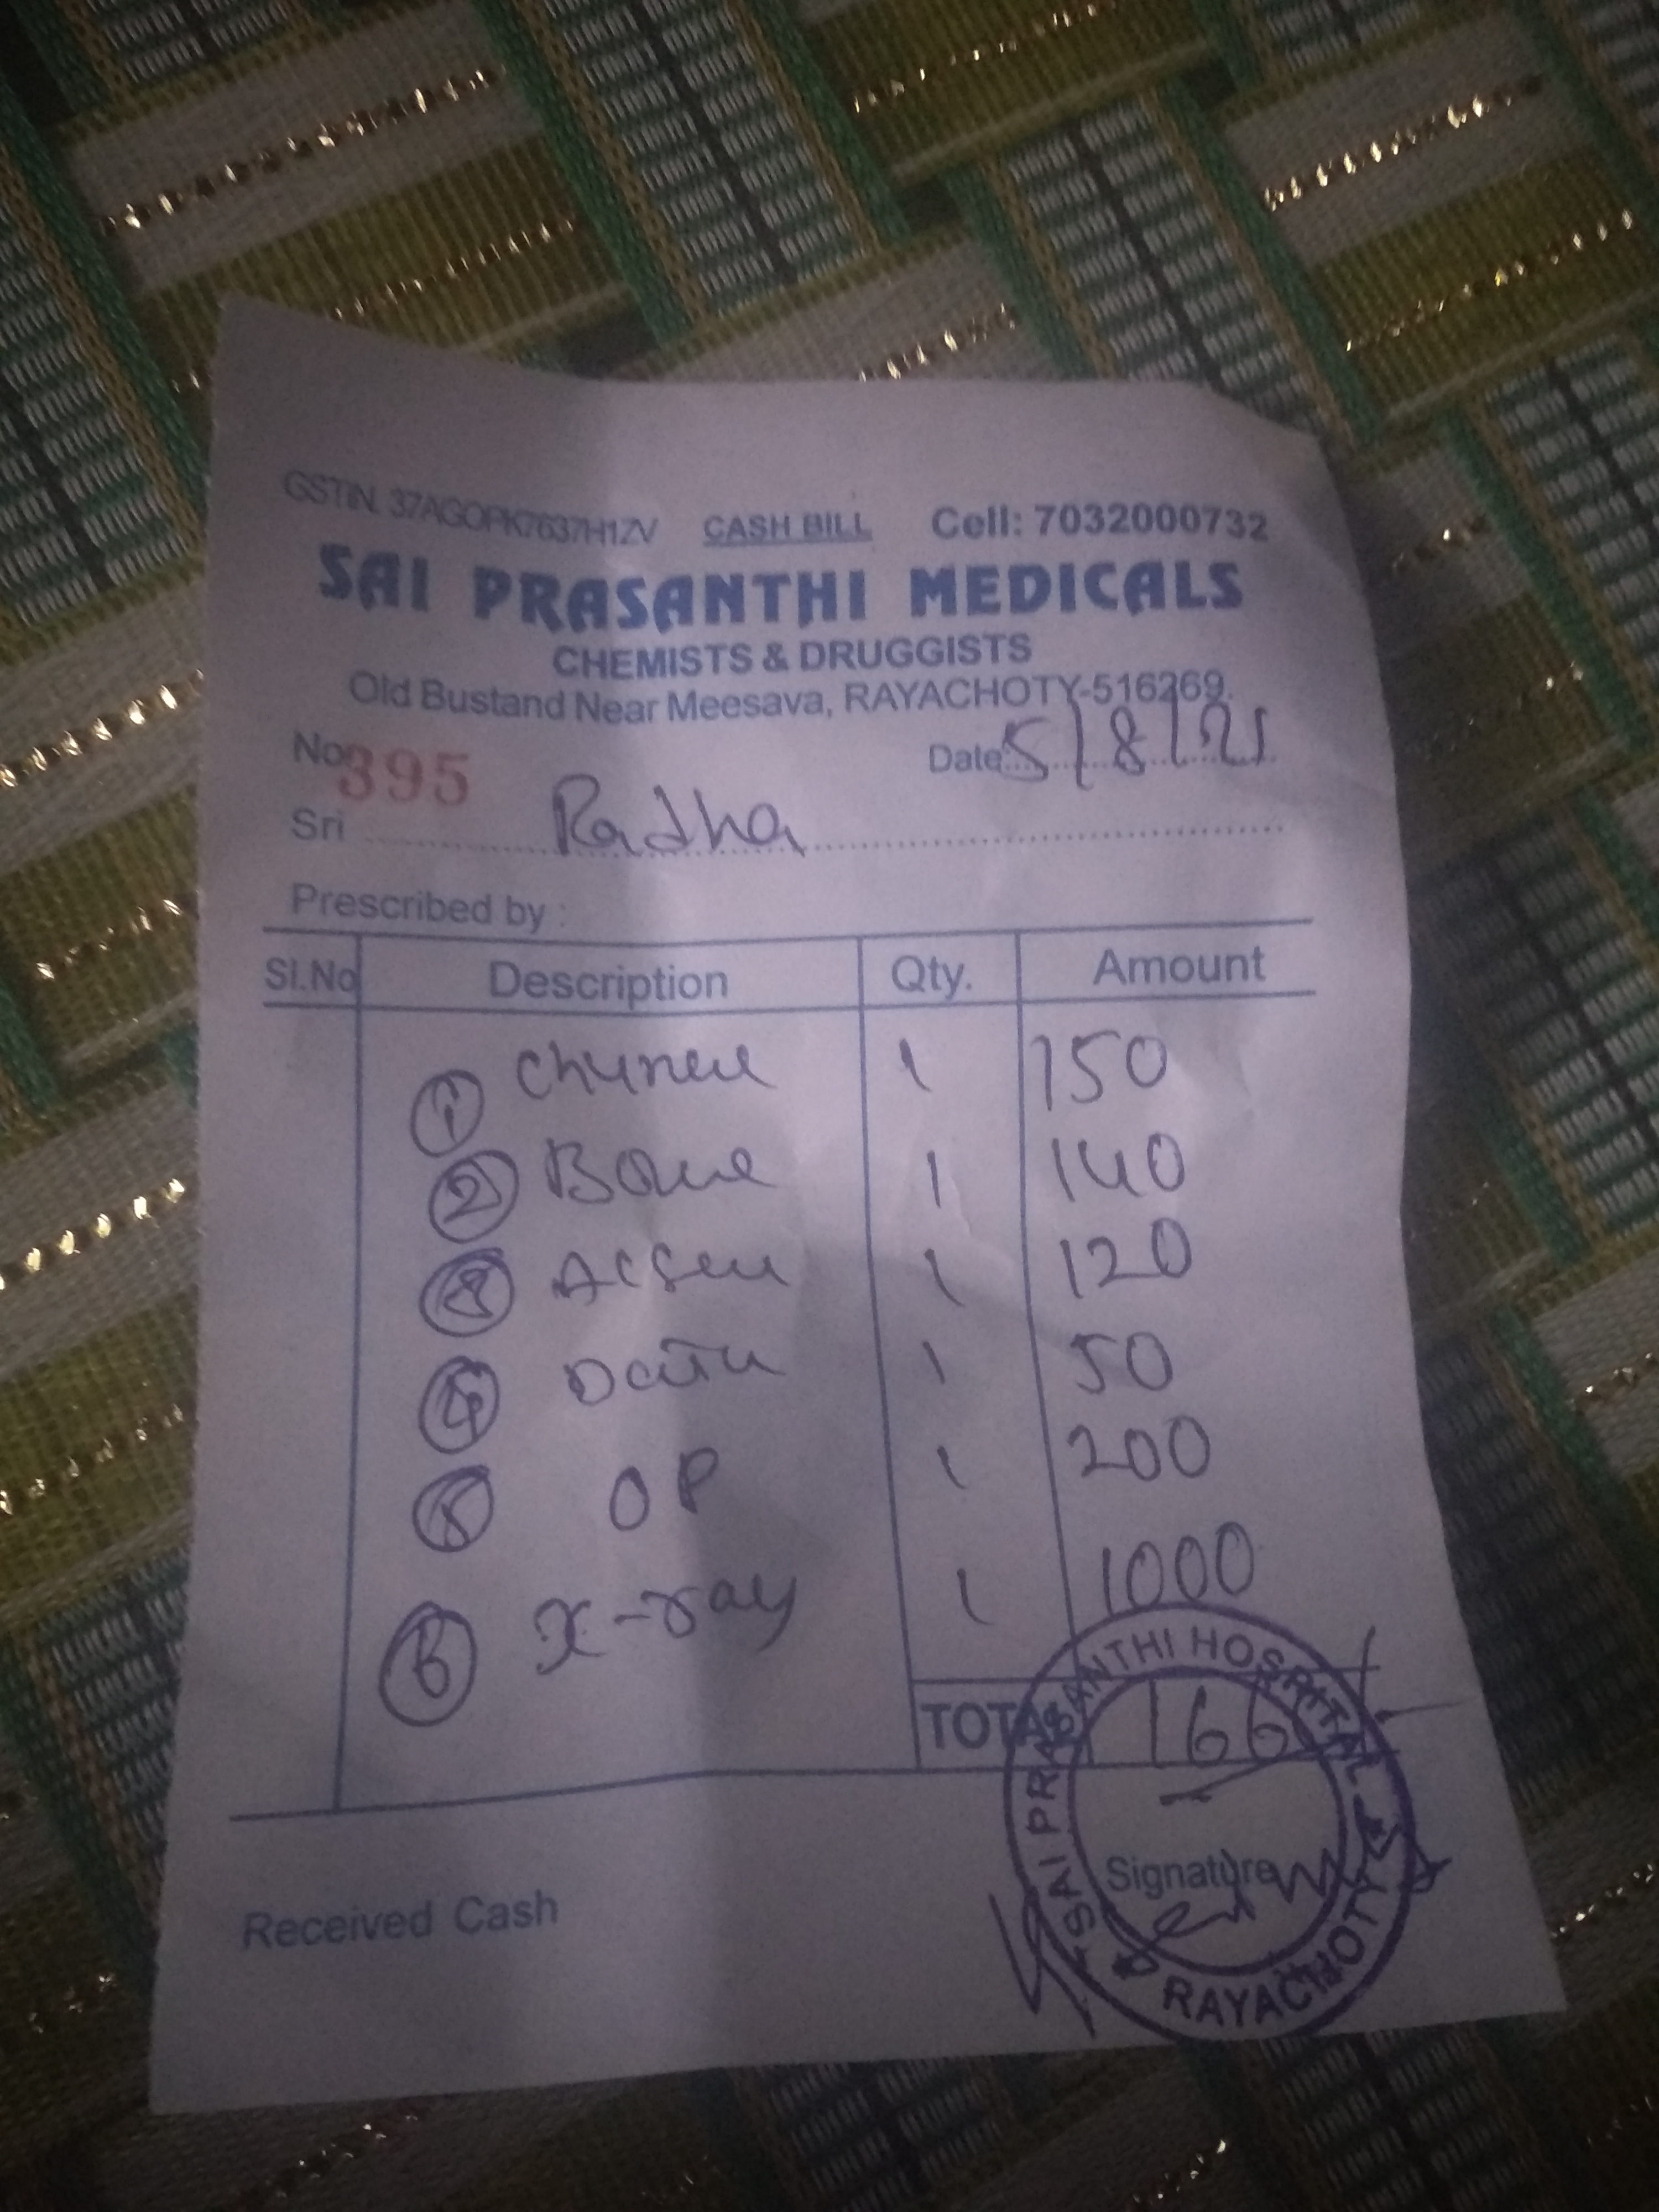 GSTIN. 37AGOPK7637H1ZV CASH BILL Cell: 7032000732
SAI PRASANTHI MEDICALS
CHEMISTS & DRUGGISTS
Old Bustand Near Meesava, RAYACHOTY-516269.
No 395 Date 5/8/21
Sri Radha
Prescribed by :
Sl.No Description Qty. Amount
1 1 150
2 1 140
3 1 120
4 1 50
5 OP 1 200
6 X-ray 1 1000
TOTAL 166
SAI PRASANTHI HOSPITAL
RAYACHOTY
Signature
Received Cash